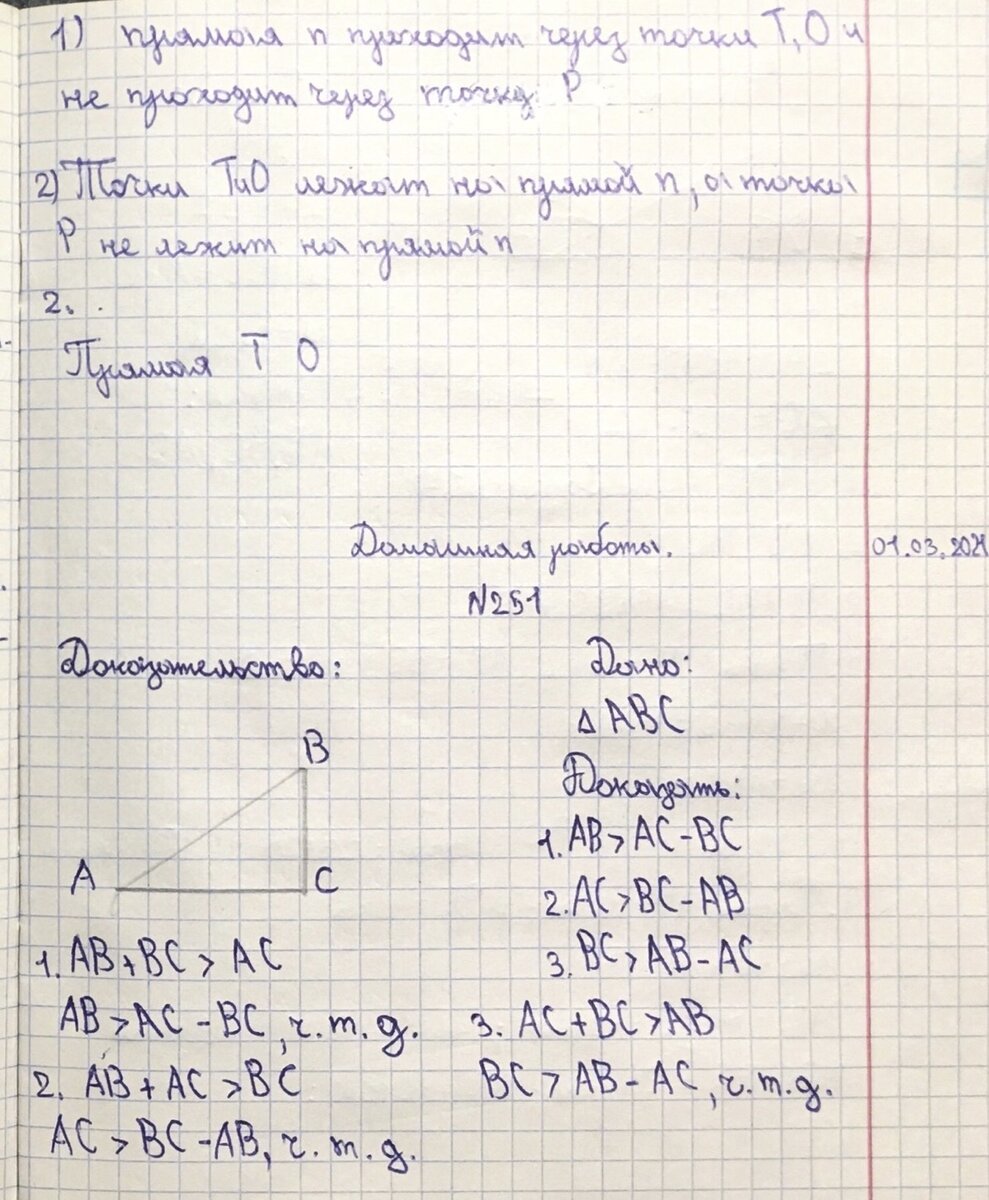 1) прямая n проходит через точки T, O и
не проходит через точку P
2) Точки T и O лежат на прямой n, а точка
P не лежит на прямой n
2.
Прямая T O
Домашная работы.
01.03.2021
N251
Доказательство:
Дано:
△ABC
Доказать:
B
A
C
1. AB > AC - BC
2. AC > BC - AB
3. BC > AB - AC
1. AB + BC > AC
AB > AC - BC, ч.т.д.
2. AB + AC > BC
AC > BC - AB, ч.т.д.
3. AC + BC > AB
BC > AB - AC, ч.т.д.